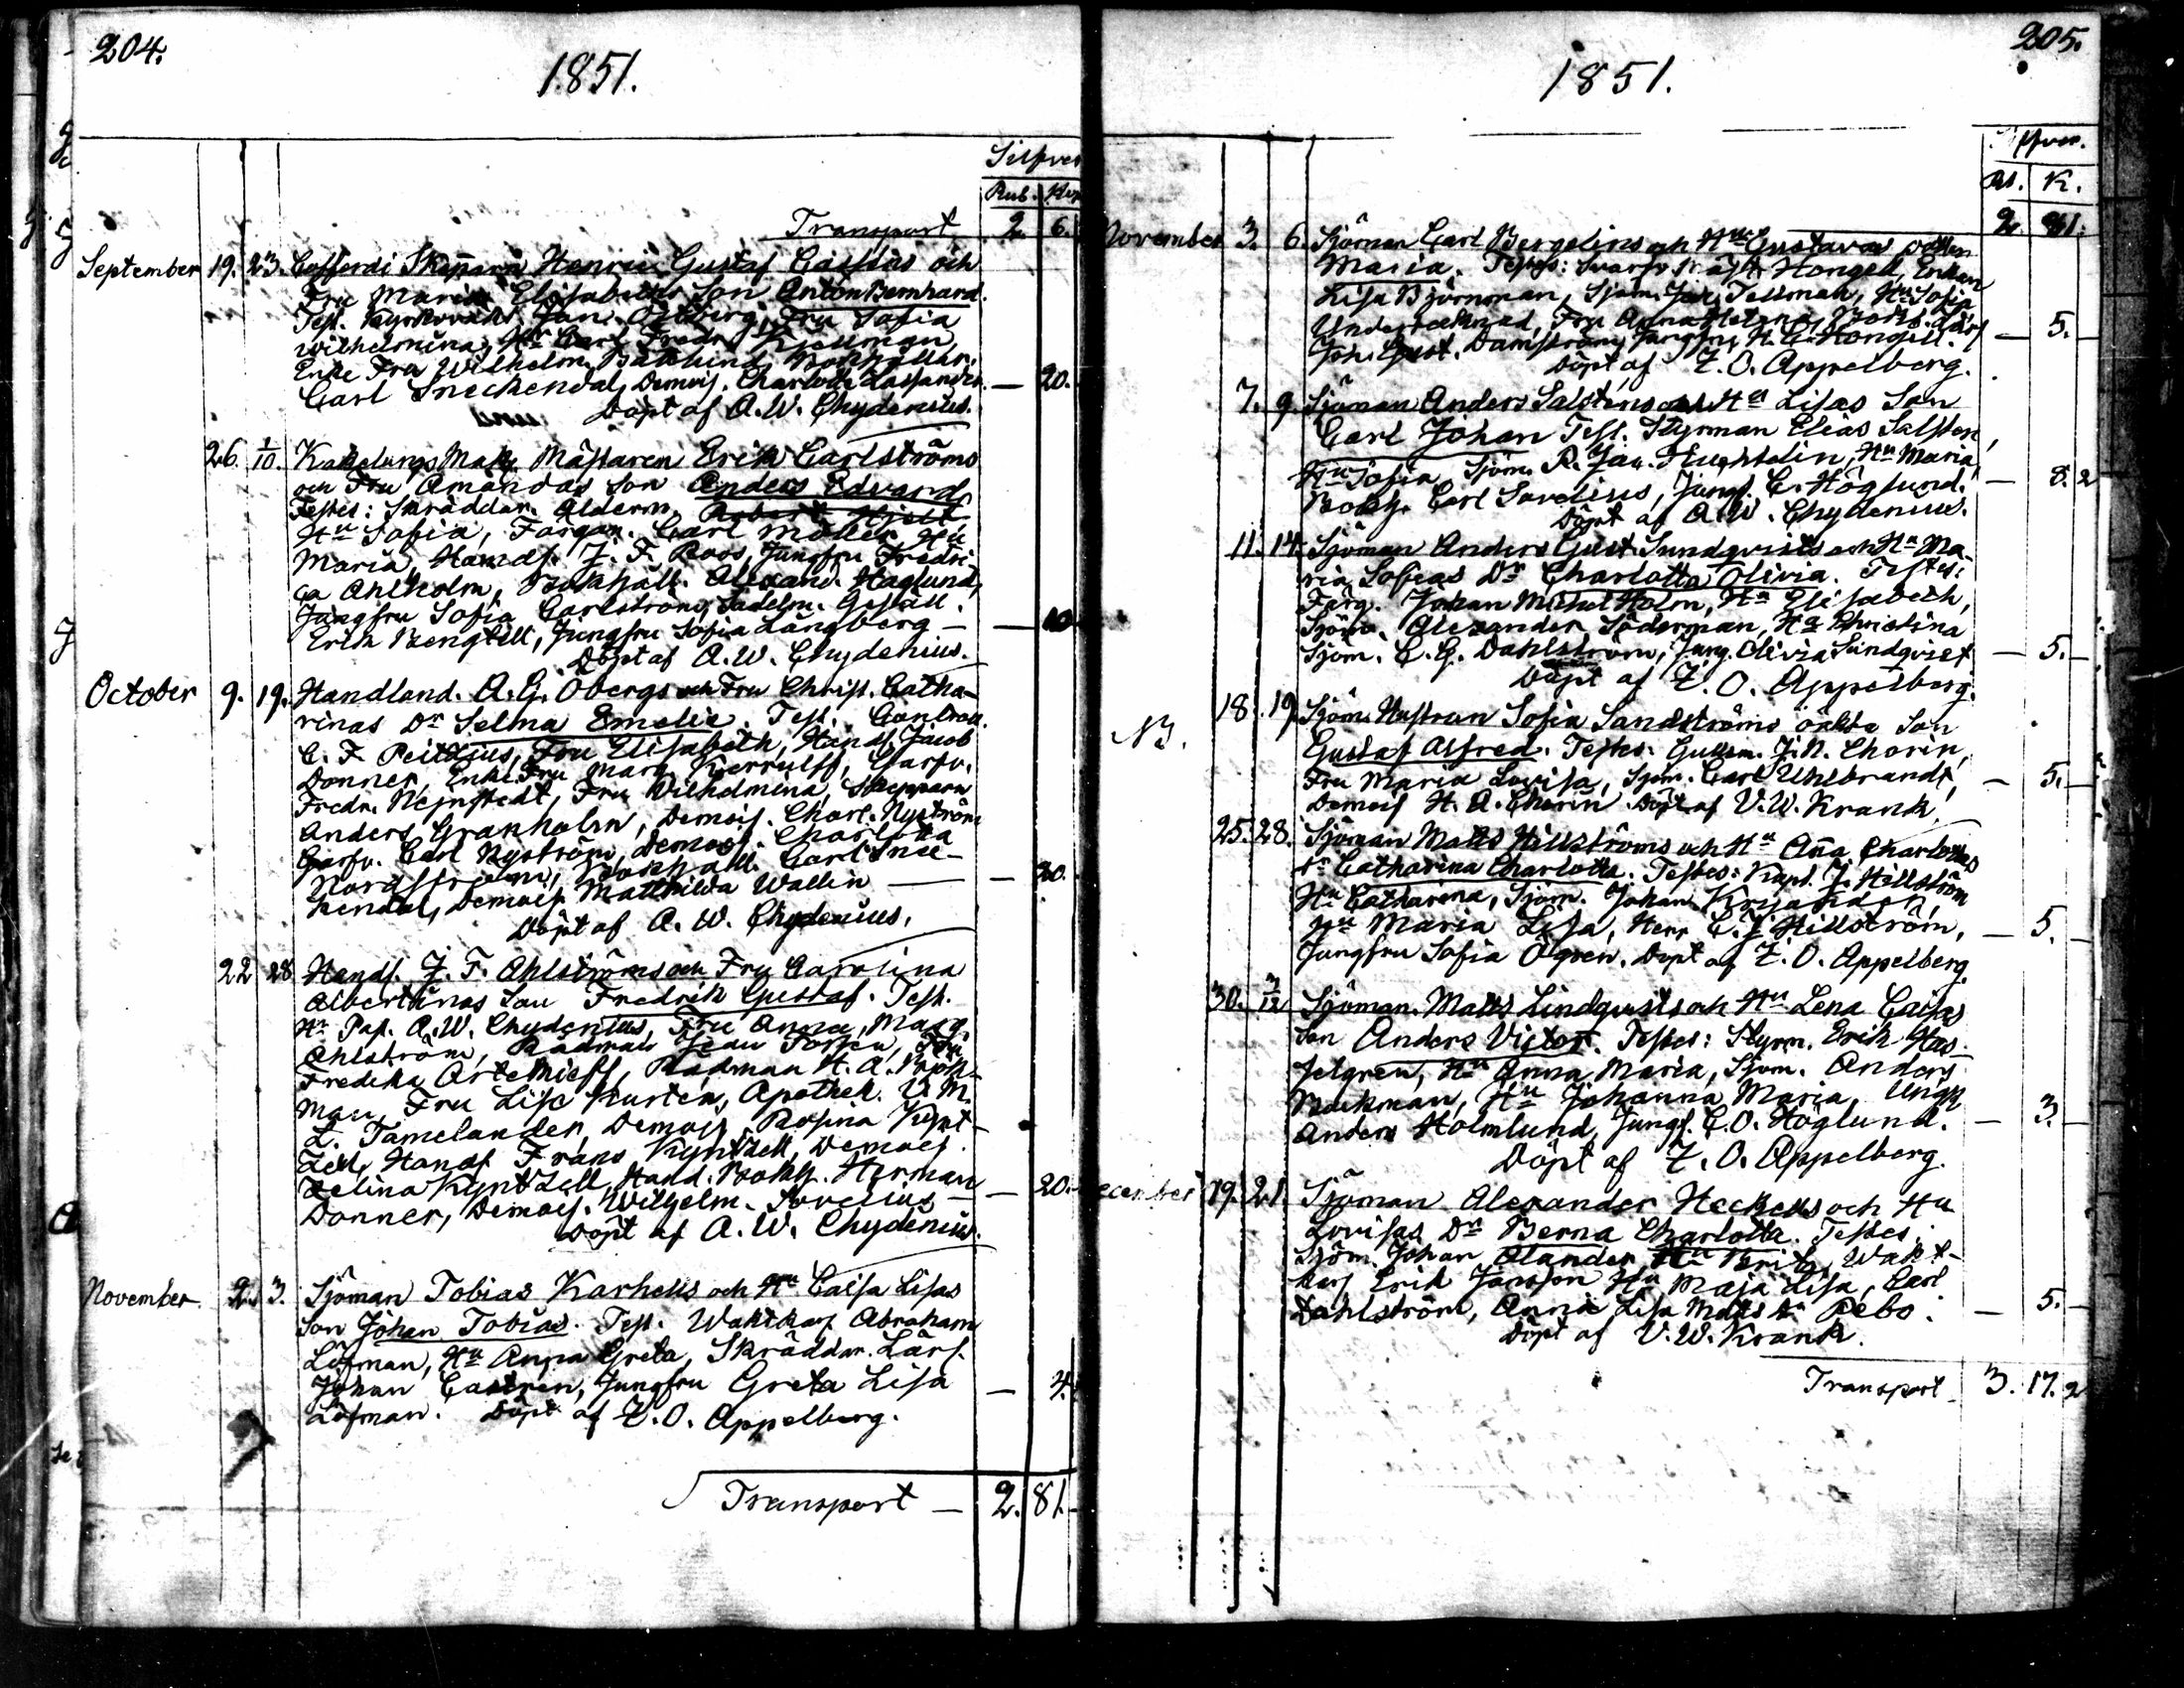 204.
1851.
Silfver
Rub. Kop
Transport 2. 6.
September 19. 23. Cofferdi Skepparn Henric Gustaf Cajslus och
Fru Maria Elisabeths Son Anton Bernhard.
Test. Kyrkovakt. Jan. Östberg, Fru Sofia
Wilhelmina, Hr Carl Fredr. Kjellman,
Enke Fru Wilhelm. Backlund, Bokhållar.
Carl Sneckendal, Demois. Charlotte Lassander. — 20.
Döpt af A. W. Chydenius.
26. 1/10. Kakelugns Mak. Mästaren Erik Carlströms
och Fru Amandas Son Anders Edvard
Testes: Skräddar. Ålderm. Robert Hjelt
Hu Sofia, Färgar. Carl Möller, Hu
Maria, Handl. J. F. Roos, Jungfru Fredri-
ca Ahlholm, Bokhåll. Alexand. Haglund,
Jungfru Sofia Carlström, Sadelm. Gesäll.
Erik Bengtell, Jungfru Sofia Långberg — 10
Döpt af A. W. Chydenius.
October 9. 19. Handland. A. G. Öbergs och Fru Christ. Catha-
rinas Dr Selma Emelie. Test.
C. F. Peitzius, Fru Elisabeth, Handl. Jacob
Donner, Enke Fru Marg. Kjerrulff, Garfv.
Fredr. Nejnstedt, Fru Wilhelmina, Skepparn
Anders Granholm, Demois. Charl. Nyström
Garfv. Carl Nyström, Demois. Charlotta
Nordström, Bokhåll. Carl Snec-
kendal, Demois. Mathilda Wallin — 20.
Döpt af A. W. Chydenius.
22 28 Handl. J. F. Ahlströms och Fru Carolina
Albertinas Son Fredrik Gustaf. Test.
Hr Past. A. W. Chydenius, Fru Anna Marg.
Ahlström, Rådman Fru
Fredika Artemieff, Rådman H. A.
man, Fru Lise Kurtén, Apothek. U. M.
L. Tamelander, Demois. Rosina Kynt-
zell, Handl. Frans Kyntzell, Demois.
Zelina Kyntzell, Hand. Bokh. Herman
Donner, Demois. Wilhelm. Sovelius — 20.
Döpt af A. W. Chydenius.
November 2. 3. Sjöman Tobias Karheks och Hu Caisa Lisas
Son Johan Tobias. Test. Waktkarl Abraham
Löfman, Hu Anna Greta, Skräddar. Lärl.
Johan Castren, Jungfru Greta Lisa — 4.
Löfman. Döpt af Z. O. Appelberg.
Transport — 2. 81.
205.
1851.
Silfver.
Rb. K.
2. 81.
November 3. 6. Sjöman Carl Bergelins och Hu Gustavas dotter
Maria. Testes: Svarfv. Mäst. Hongell, Enkan
Lisa Björnman, Sjöm. Jak. Tellman, Hu Sofia
Undertecknad, Fru Anna Helena, Bokb. Lärl
Joh. Gust. Damström, Jungfru H. C. Hongell. — 5.
Döpt af Z. O. Appelberg.
7. 9. Sjöman Anders Salstens och Hu Lisas Son
Carl Johan Test. Styrman Elias Salsten,
Hu Sofia, Sjöm. A. Jac. Hu Maria,
Bokh. Carl Sovelius, Jungf. C. Höglund. — 8. 2
Döpt af A. W. Chydenius.
11. 14. Sjöman Anders Gust. Sundqvists och Hu Ma-
ria Sofias Dr Charlotta Olivia. Testes:
Färg. Johan Michel Holm, Hu Elisabeth,
Sjöm. Alexander Söderman, Hu Christina
Sjöm. C. G. Dahlström, Jung. Olivia Sundqvist — 5.
Döpt af Z. O. Appelberg.
N3. 18. 19 Sjöm. Hustrun Sofia Sandströms oäkta Son
Gustaf Alfred. Testes: Gullsm. J. N. Chorin,
Fru Maria Lovisa, Sjöm. Carl Uhlbrandt, — 5.
Demois H. A. Chorin Döpt af V. W. Krank.
25. 28. Sjöman Matts Hillströms och Hu Anna Charlottas
Dr Catharina Charlotta. Testes: Kapt. J. Hillström
Hu Catharina, Sjöm. Johan
Hu Maria Lisa, Herr C. J. Hillström, — 5.
Jungfru Sofia Ögren. Döpt af Z. O. Appelberg.
30. 3/12 Sjöman. Matts Lindqvists och Hu Lena Cajsas
Son Anders Victor. Testes: Styrm. Erik Has-
selgren, Hu Anna Maria, Sjöm. Anders
Backman, Hu Johanna Maria, Ungk
Anders Holmlund, Jungf. C. O. Höglund. — 3.
Döpt af Z. O. Appelberg.
ecember 19. 21. Sjöman Alexander Heckells och Hu
Lovisas Dr Berna Charlotta. Testes.
Sjöm. Johan Ålander, Hu Brita, Wakt-
karl Erik Jansson Hu Maja Lisa, Carl
Dahlström, Anna Lisa Matts Dr Pebo. — 5.
Döpt af V. W. Krank.
Transport 3. 17. 2